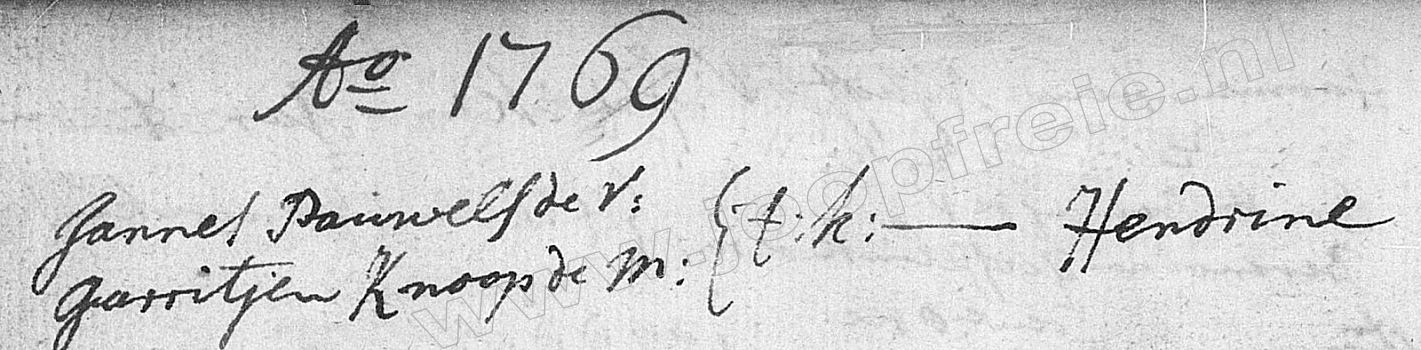 Ao 1769
Jannes Pauwels de v:
Garritjen Knoop de m: { t: k: — Hendrine
www.joopfreie.nl